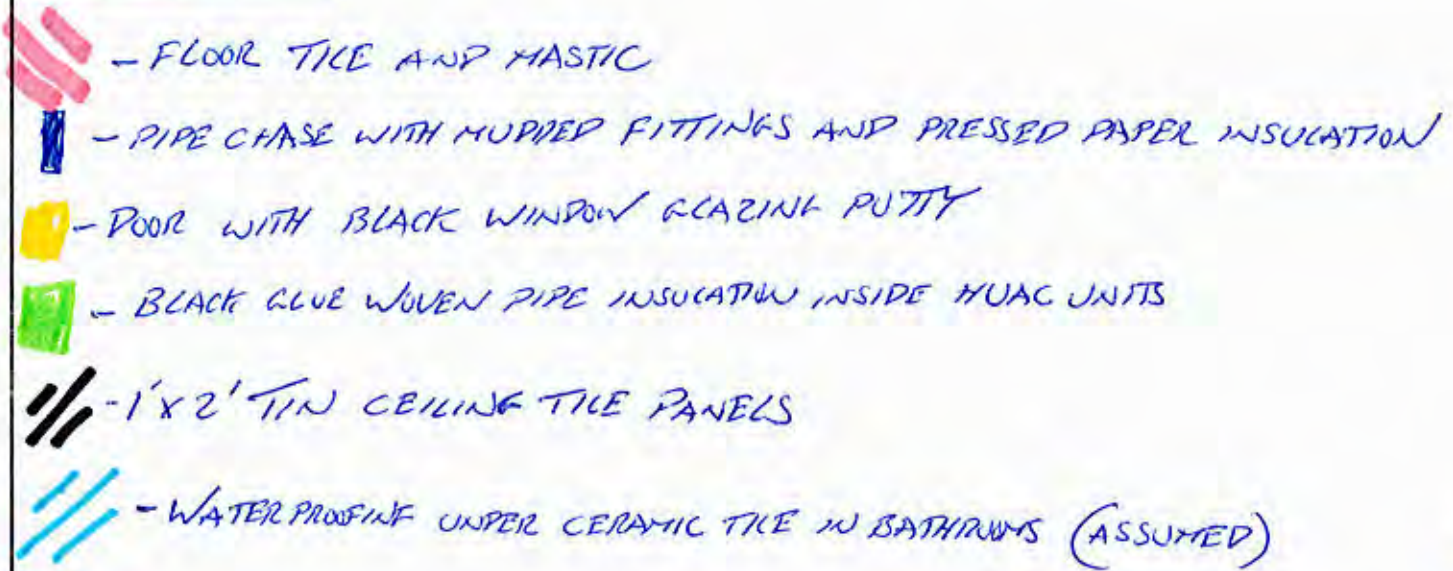 - FLOOR TILE AND MASTIC
- PIPE CHASE WITH MUDDED FITTINGS AND PRESSED PAPER INSULATION
- DOOR WITH BLACK WINDOW GLAZING PUTTY
- BLACK GLUE WOVEN PIPE INSULATION INSIDE HVAC UNITS
- 1'x2' TIN CEILING TILE PANELS
- WATERPROOFING UNDER CERAMIC TILE IN BATHROOMS (ASSUMED)